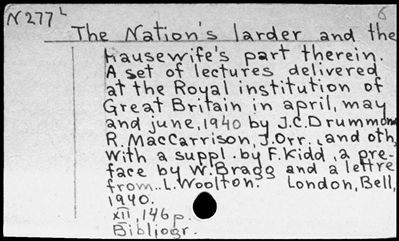 N277 L
6
The Nation's larder and the
Hausewife's part therein.
A set of lectures delivered
at the Royal institution of
Great Britain in april, may
and june, 1940 by J.C. Drummond
R. MacCarrison, J. Orr., and oth
With a suppl. by F. Kidd, a pre-
face by W. Bragg and a lettre
from.. L. Woolton. London, Bell,
1940.
XII, 146 p.
Bibliogr.